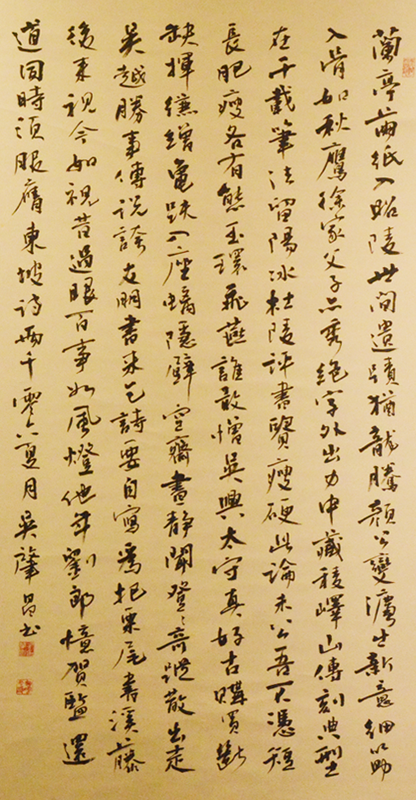 蘭亭繭紙入昭陵世間遺蹟猶龍騰顏公變灋生新意細筋
入骨如秋鷹徐家父子亦秀絕字外出力中藏稜嶧山傳刻典型
在千載筆法留陽冰杜陵評書貴瘦硬此論未公吾不憑短
長肥瘦各有態玉環飛燕誰敢憎吳興太守真好古購買斷
缺揮縑繒龜趺入座螭隱壁空齋晝靜聞登登奇蹤散出走
吳越勝事傳說誇友朋書來乞詩要自寫為把栗尾書溪藤
後來視今如視昔過眼百事如風燈他年劉郎憶賀監還
道同時須服膺東坡詩兩千零六夏月吳肇昌書